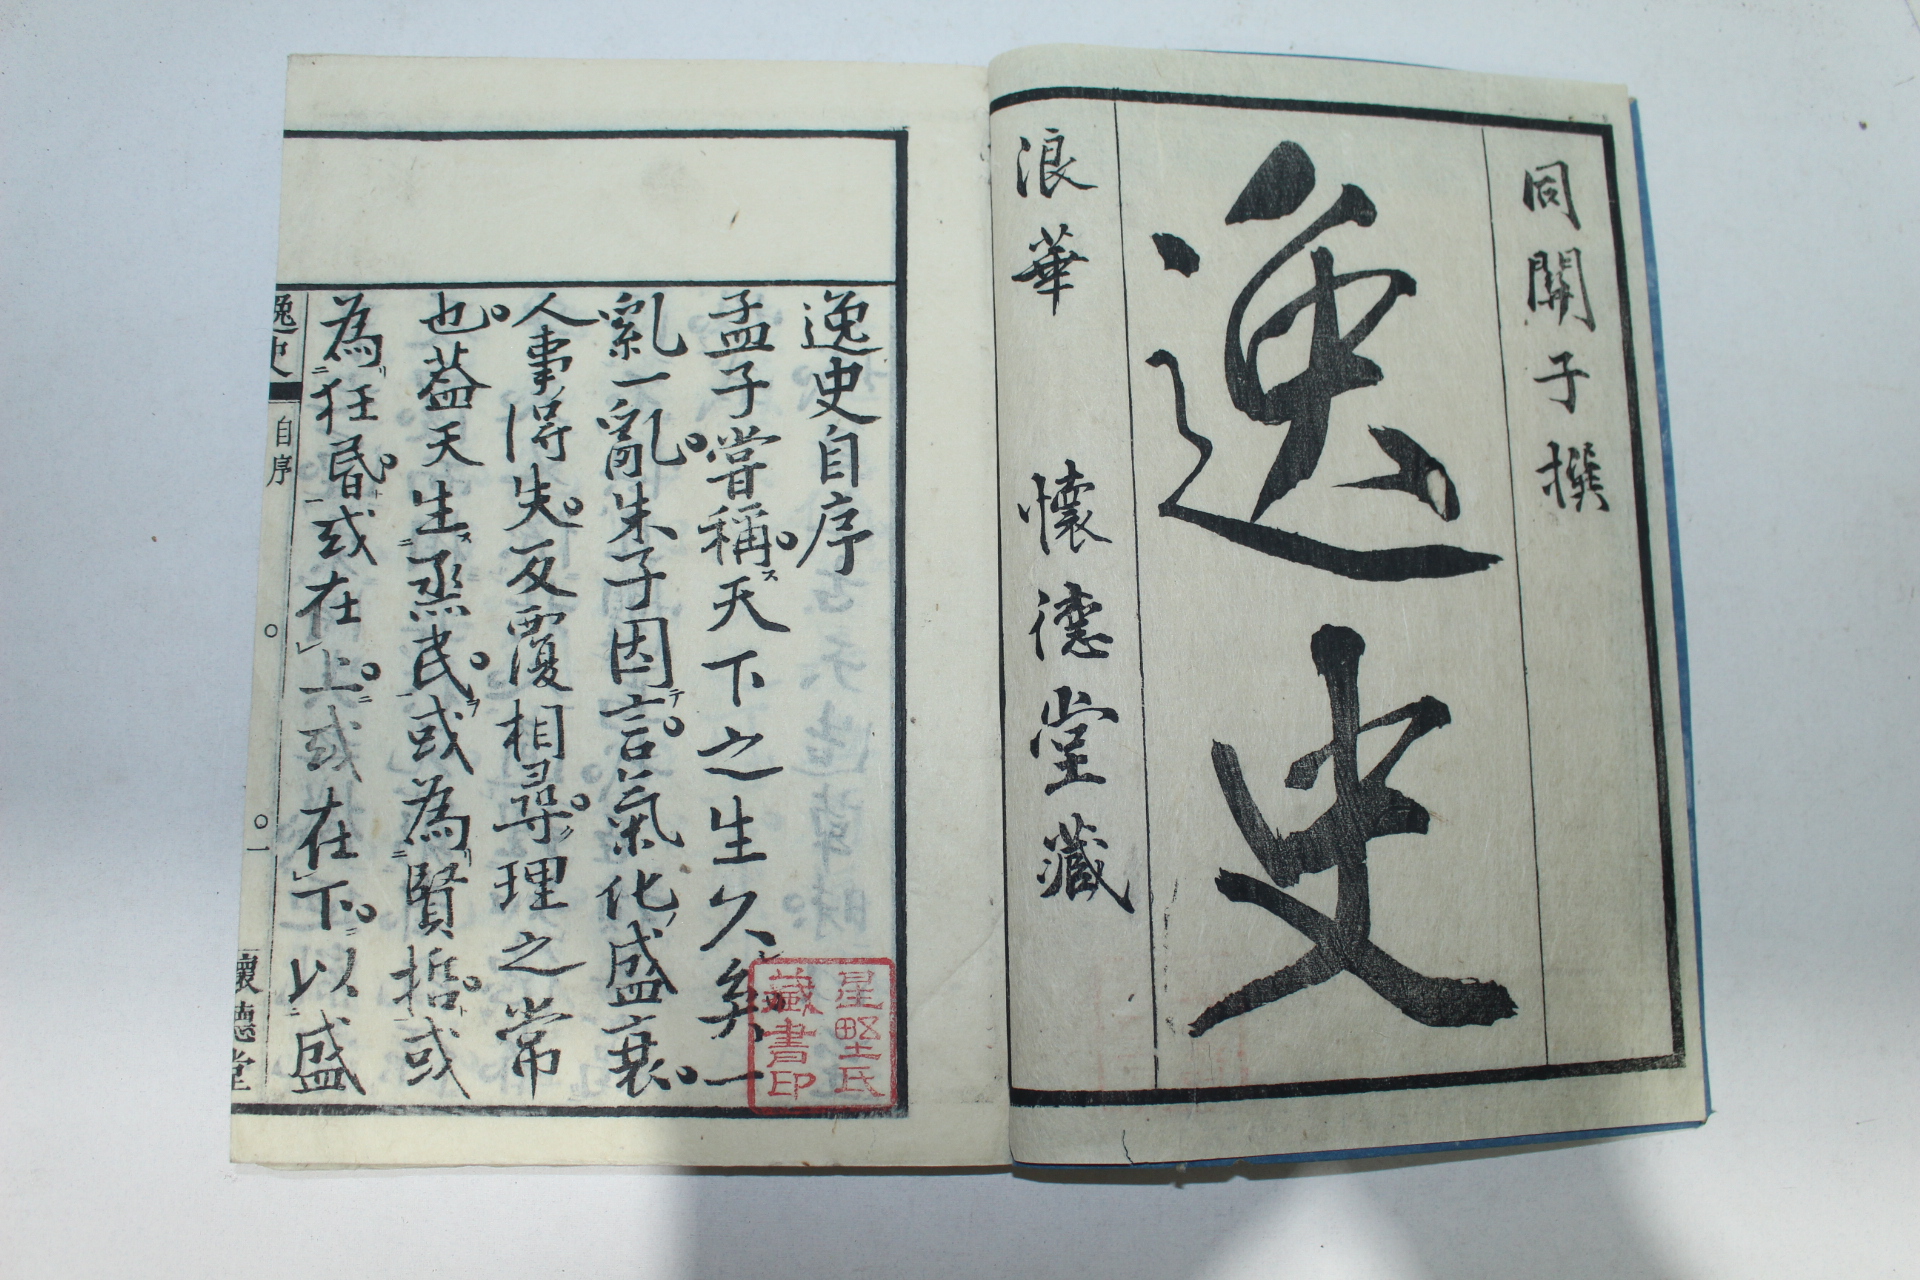 同關子撰
逸史
浪華 懷德堂藏
逸史自序
孟子嘗稱。ス天下之生久矣一
亂一亂。朱子因テ言。氣化ノ盛衰。
人事得失。反覆相尋。ノ理之常
也。蓋天生ニス烝民。ヲ或為ニリ賢哲。ト或
為ニリ狂昏。ト或在上。ニ或在下。ニ以盛
逸史
自序
○
○一
懷德堂
星野氏
藏書印